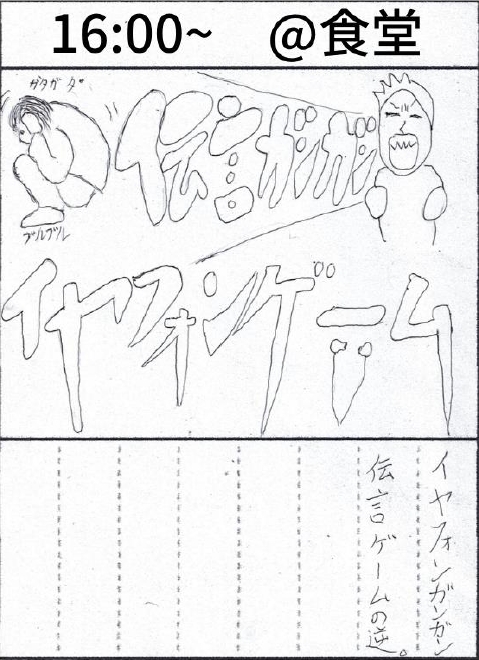 16:00~ @食堂
ガタガタ
伝言ガンガン
ブルブル
イヤフォンゲーム
イヤフォンガンガン
伝言ゲームの逆。